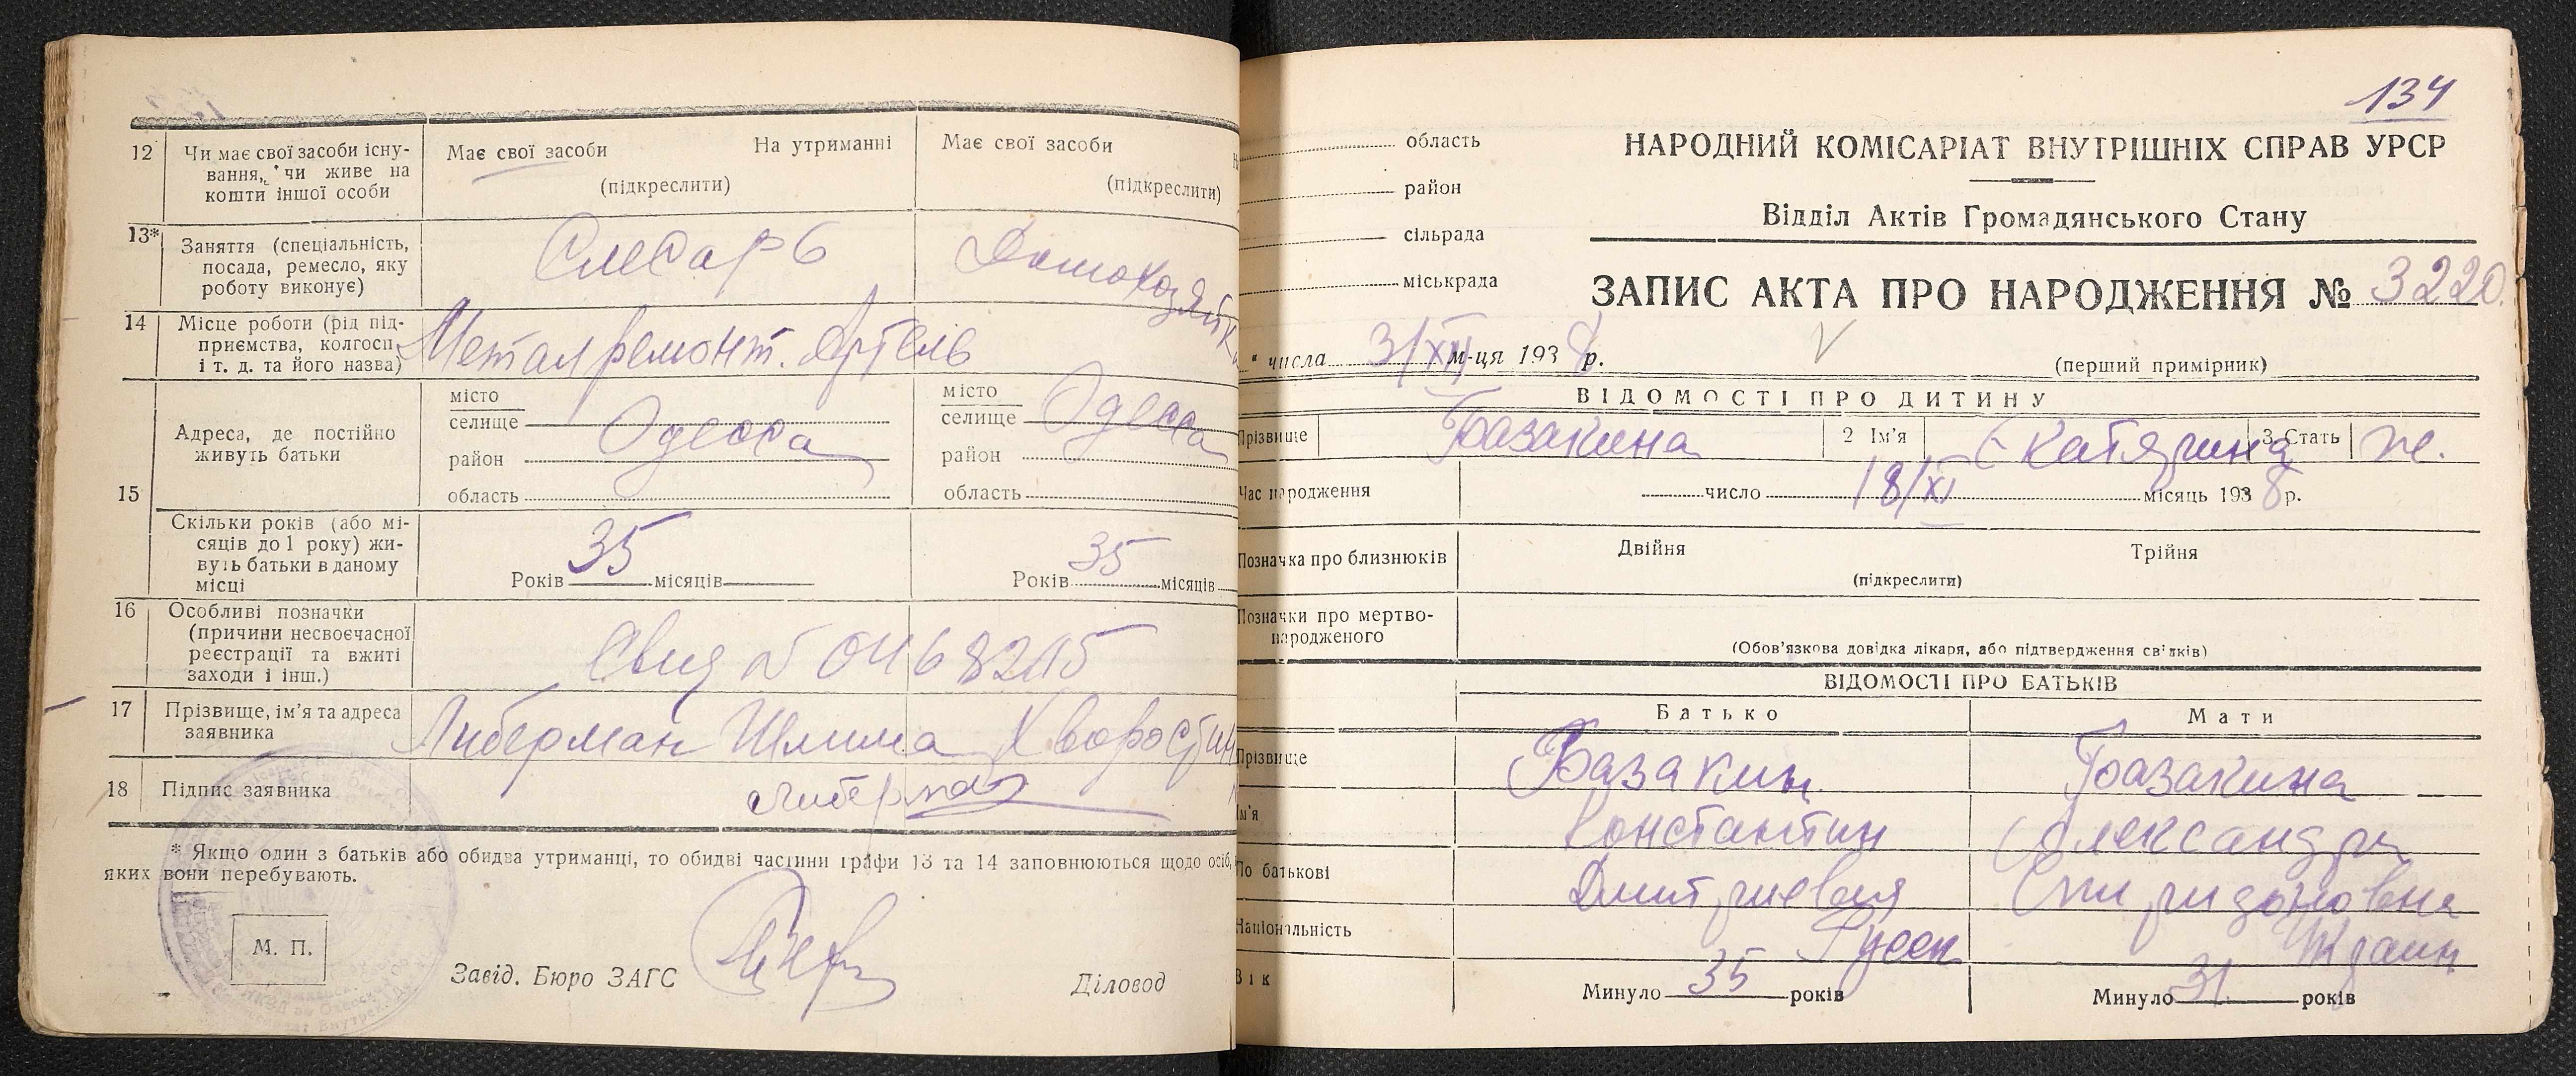 12
Чи має свої засоби існу-
вання, чи живе на
кошти іншої особи
Має свої засоби
На утриманні
(підкреслити)
Має свої засоби
(підкреслити)
13*
Заняття (спеціальність,
посада, ремесло, яку
роботу виконує)
Слесарь
Домохозяйка
14
Місце роботи (рід під-
приємства, колгосп
і т. д. та його назва)
Металремонт. Артель
15
Адреса, де постійно
живуть батьки
місто
селище
Одесса
район
область
місто
селище
Одесса
район
область
Скільки років (або мі-
сяців до 1 року) жи-
вуть батьки в даному
місці
Років 35 місяців
Років 35 місяців
16
Особливі позначки
(причини несвоєчасної
реєстрації та вжиті
заходи і інш.)
Свид №
17
Прізвище, ім'я та адреса
заявника
Либерман
18
Підпис заявника
Либерман
* Якщо один з батьків або обидва утриманці, то обидві частини графи 13 та 14 заповнюються щодо осіб,
яких вони перебувають.
М. П.
Завід. Бюро ЗАГС
Діловод
134
область
район
сільрада
міськрада
НАРОДНИЙ КОМІСАРІАТ ВНУТРІШНІХ СПРАВ УРСР
Відділ Актів Громадянського Стану
ЗАПИС АКТА ПРО НАРОДЖЕННЯ № 3220
" числа 31/XII м-ця 1938 р.
(перший примірник)
ВІДОМОСТІ ПРО ДИТИНУ
Прізвище
Базакина
2 Ім'я
Екатярина
3 Стать
ж.
Час народження
число 18/XI місяць 1938 р.
Позначка про близнюків
Двійня
Трійня
(підкреслити)
Позначки про мертво-
народженого
(Обов'язкова довідка лікаря, або підтвердження свідків)
ВІДОМОСТІ ПРО БАТЬКІВ
Батько
Мати
Прізвище
Базакин
Базакина
Ім'я
Константин
Александра
По батькові
Дмитриевич
Спиридоновна
Національність
Русск
Вік
Минуло 35 років
Минуло 31 років